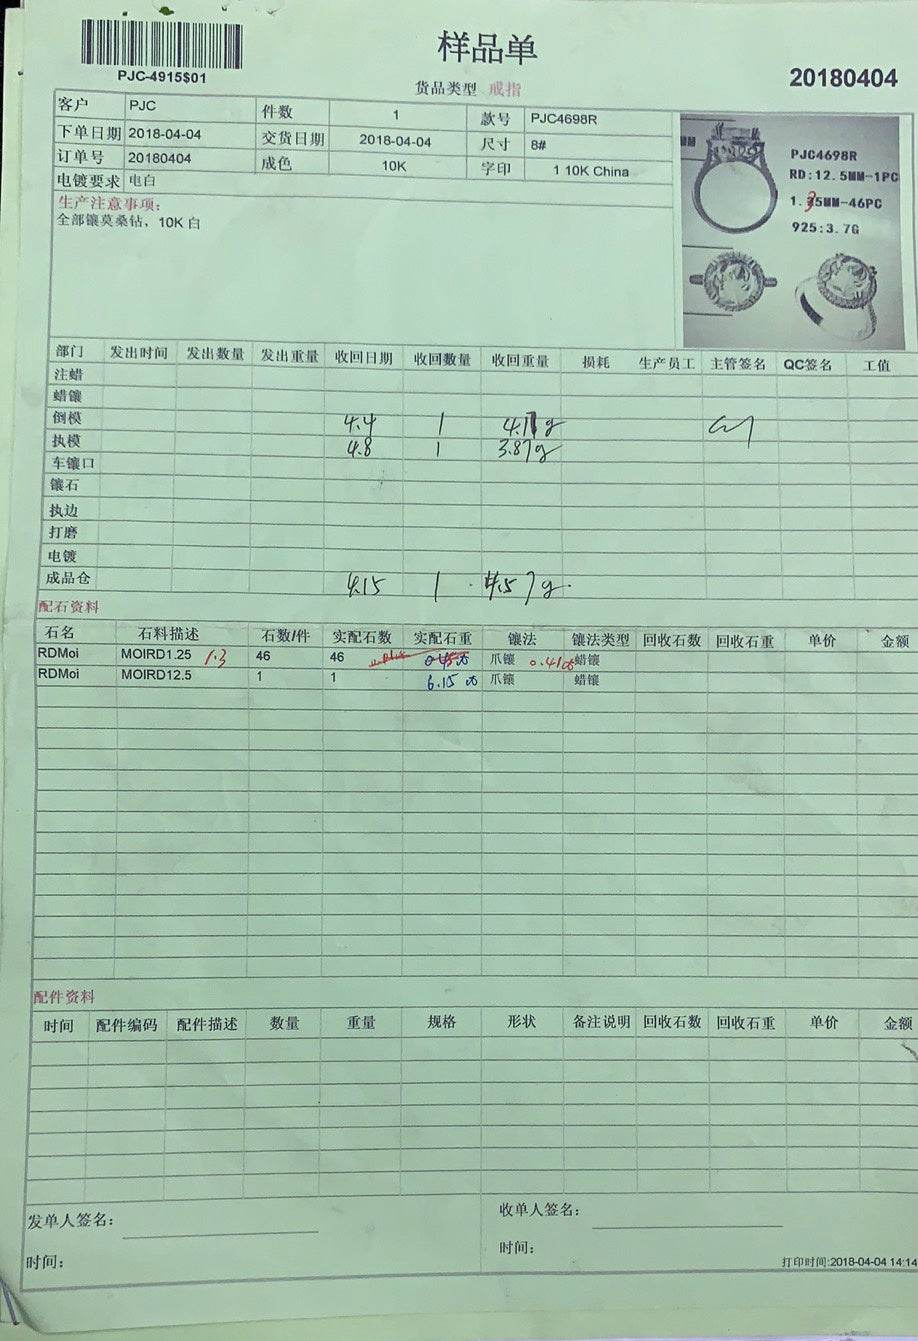 样品单
PJC-4915$01
货品类型 戒指
20180404
客户 PJC 件数 1 款号 PJC4698R
下单日期 2018-04-04 交货日期 2018-04-04 尺寸 8#
订单号 20180404 成色 10K 字印 1 10K China
电镀要求 电白
生产注意事项:
全部镶莫桑钻，10K 白
PJC4698R
RD:12.5MM-1PC
1.35MM-46PC
925:3.7G
部门 发出时间 发出数量 发出重量 收回日期 收回数量 收回重量 损耗 生产员工 主管签名 QC签名 工值
注蜡
蜡镶
倒模 4.4 1 4.11g
执模 4.8 1 3.87g
车镶口
镶石
执边
打磨
电镀
成品仓 4.15 1 4.57g
配石资料
石名 石料描述 石数/件 实配石数 实配石重 镶法 镶法类型 回收石数 回收石重 单价 金额
RDMoi MOIRD1.25 1.3 46 46 爪镶 0.41ct 蜡镶
RDMoi MOIRD12.5 1 1 6.15 ct 爪镶 蜡镶
配件资料
时间 配件编码 配件描述 数量 重量 规格 形状 备注说明 回收石数 回收石重 单价 金额
发单人签名: 收单人签名:
时间: 时间:
打印时间:2018-04-04 14:14